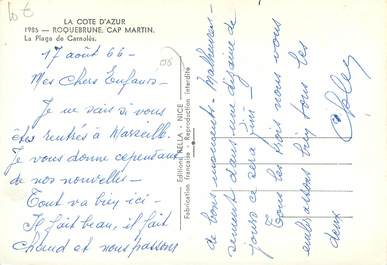 10 €
LA COTE D'AZUR
1985 — ROQUEBRUNE. CAP MARTIN.
La Plage de Carnolès.
17 août 66 -
Mes Chers Enfants -
Je ne sais si vous
êtes rentrés à Marseille
Je vous donne cependant
de nos nouvelles -
Tout va bien ici -
Il fait beau, il fait
chaud et nous passons
Editions BELLA - NICE
Fabrication française - Reproduction interdite
06
de bons moments - Malheureu-
sement dans une dizaine de
jours ce sera fini -
Tous les trois nous vous
embrassons bien tous les
deux